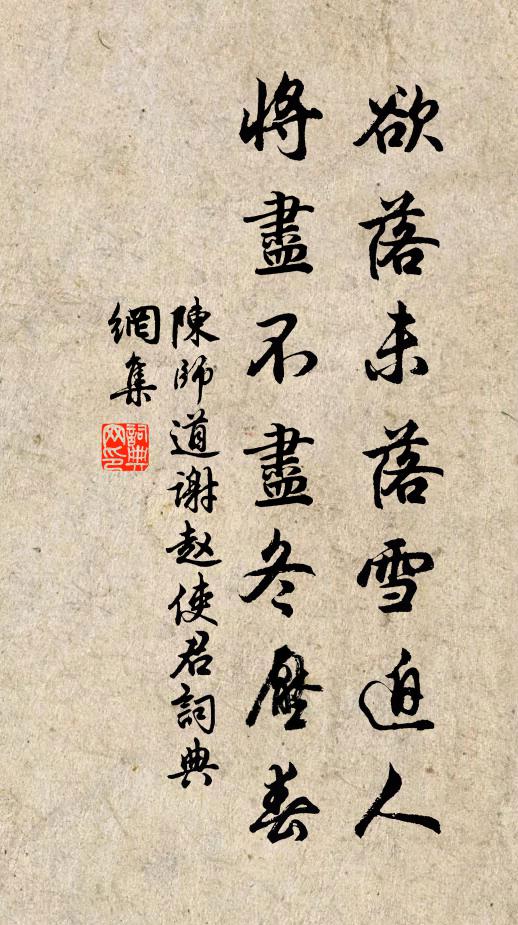 欲落未落雪迫人
將盡不盡冬壓春
陳師道謝趙使君詞典
網集
詞典網印